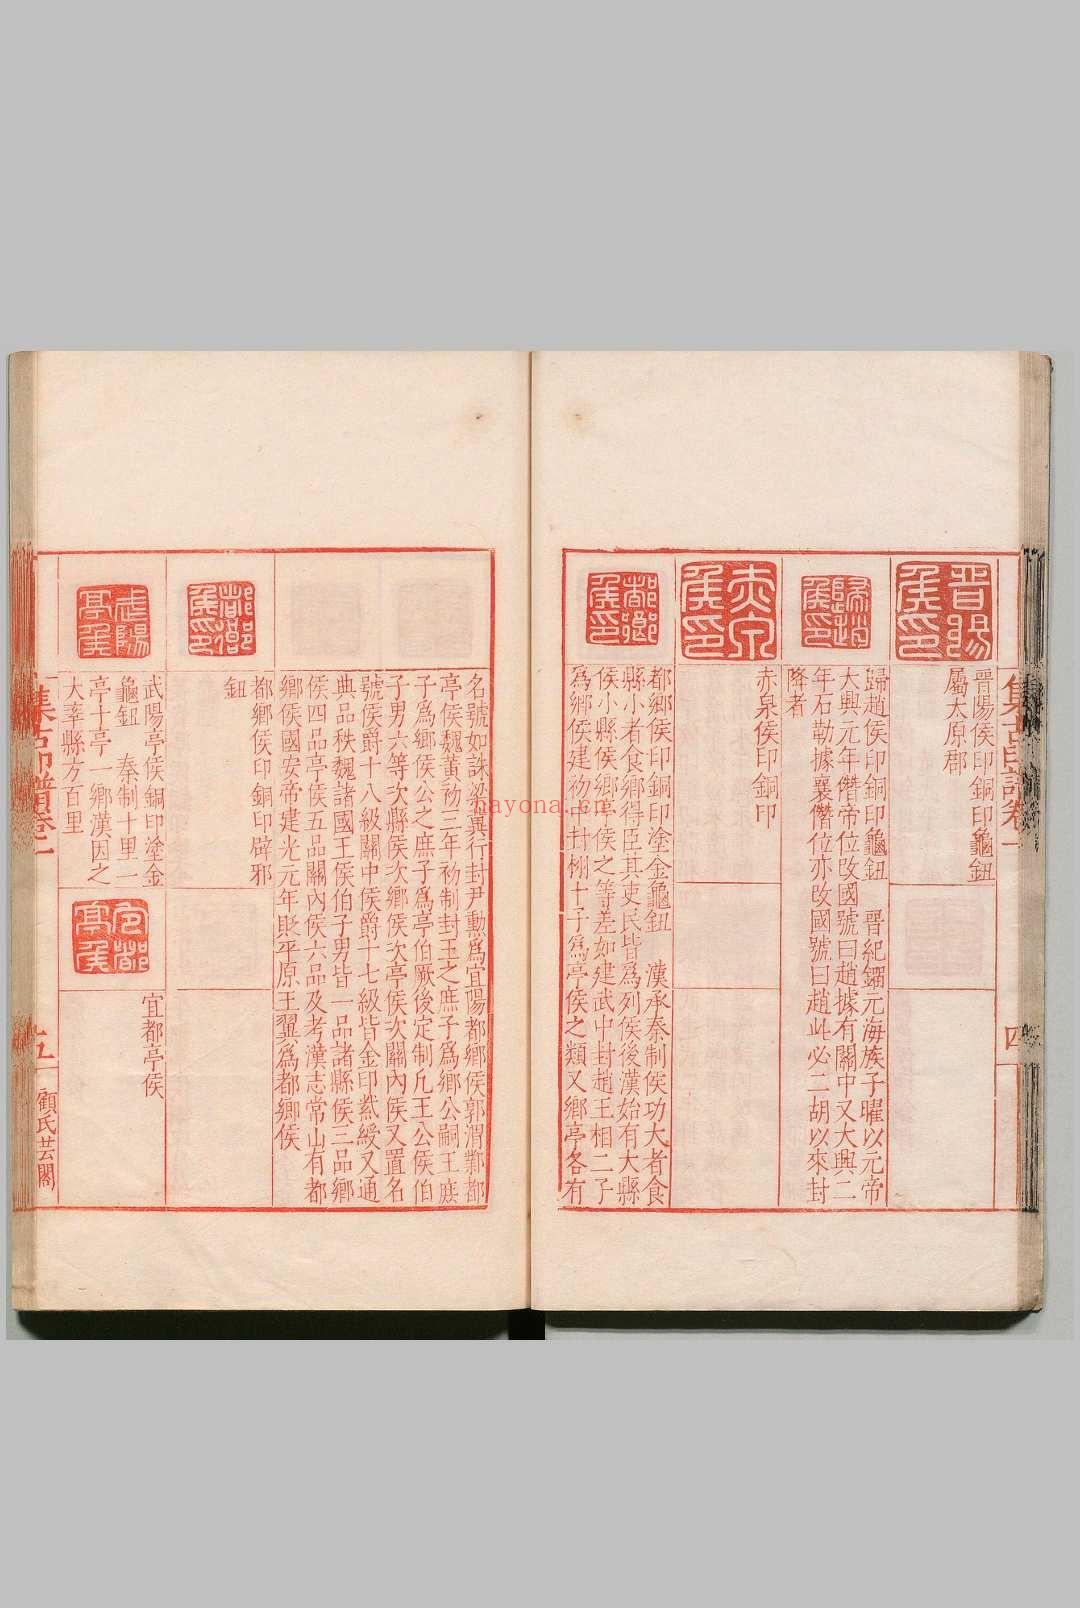 集古印譜卷一
四
晋陽侯印
晋陽侯印銅印龜鈕
屬太原郡
歸趙侯印
歸趙侯印銅印龜鈕　晋紀劉元海族子曜以元帝
大興元年僭帝位改國號曰趙據有關中又大興二
年石勒據襄僭位亦改國號曰趙此必二胡以來封
降者
赤泉侯印
赤泉侯印銅印
都鄉侯印
都鄉侯印銅印塗金龜鈕　漢承秦制侯功大者食
縣小者食鄉得臣其吏民皆爲列侯後漢始有大縣
侯小縣侯鄉亭侯之等差如建武中封趙王相二子
爲鄉侯建初中封栁十子爲亭侯之類又鄉亭各有
名號如誅梁兾行封尹勲爲宜陽都鄉侯郭渭鄴都
亭侯魏黄初三年初制封王之庶子爲鄉公嗣王庶
子爲鄉侯公之庶子爲亭伯厥後定制凡王公侯伯
子男六等次縣侯次鄉侯次亭侯次關內侯又置名
號侯爵十八級關中侯爵十七級皆金印紫綬又通
典品秩魏諸國王侯伯子男皆一品諸縣侯三品鄉
侯四品亭侯五品關內侯六品及考漢志常山有都
鄉侯國安帝建光元年貶平原王翼爲都鄉侯
都鄉侯印
都鄉侯印銅印辟邪
鈕
武陽亭侯
武陽亭侯銅印塗金
龜鈕　秦制十里一
亭十亭一鄉漢因之
大率縣方百里
宜都亭侯
宜都亭侯
集古印譜卷一
五
顧氏芸閣
nayona.cn